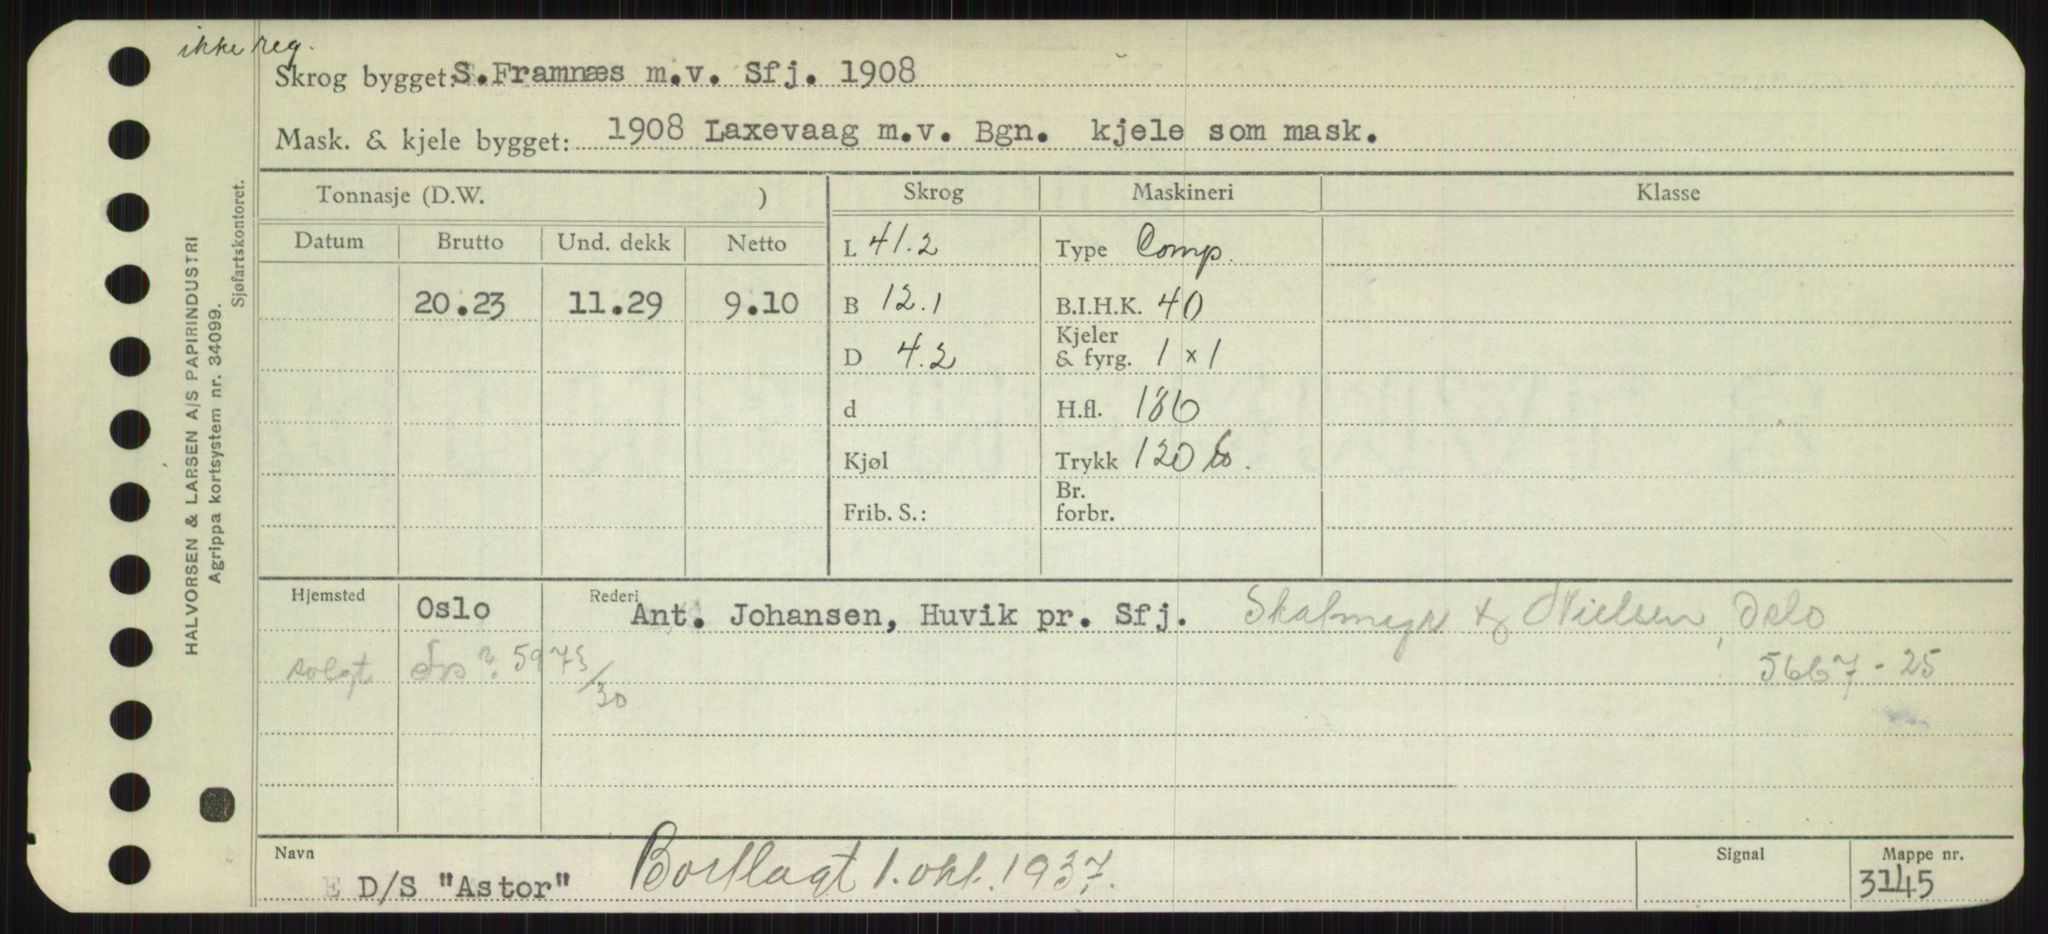 ikke reg.
Skrog bygget: S.Framnæs m.v. Sfj. 1908
Mask. & kjele bygget: 1908 Laxevaag m.v. Bgn. kjele som mask.
Tonnasje (D.W. ) Skrog Maskineri Klasse
Datum Brutto Und. dekk Netto L 41.2 Type Comp.
20.23 11.29 9.10 B 12.1 B.I.H.K. 40
D 4.2 Kjeler & fyrg. 1 x 1
d H.fl. 186
Kjøl Trykk 120
Frib. S.: Br. forbr.
Hjemsted Oslo Rederi Ant. Johansen, Huvik pr. Sfj. & Nielsen, Oslo
solgt 5973/30 5667-25
Navn D/S "Astor" Bortlagt 1. okt. 1937. Signal Mappe nr. 3145
HALVORSEN & LARSEN A/S PAPIRINDUSTRI
Agrippa kortsystem nr. 34099.
Sjøfartskontoret.